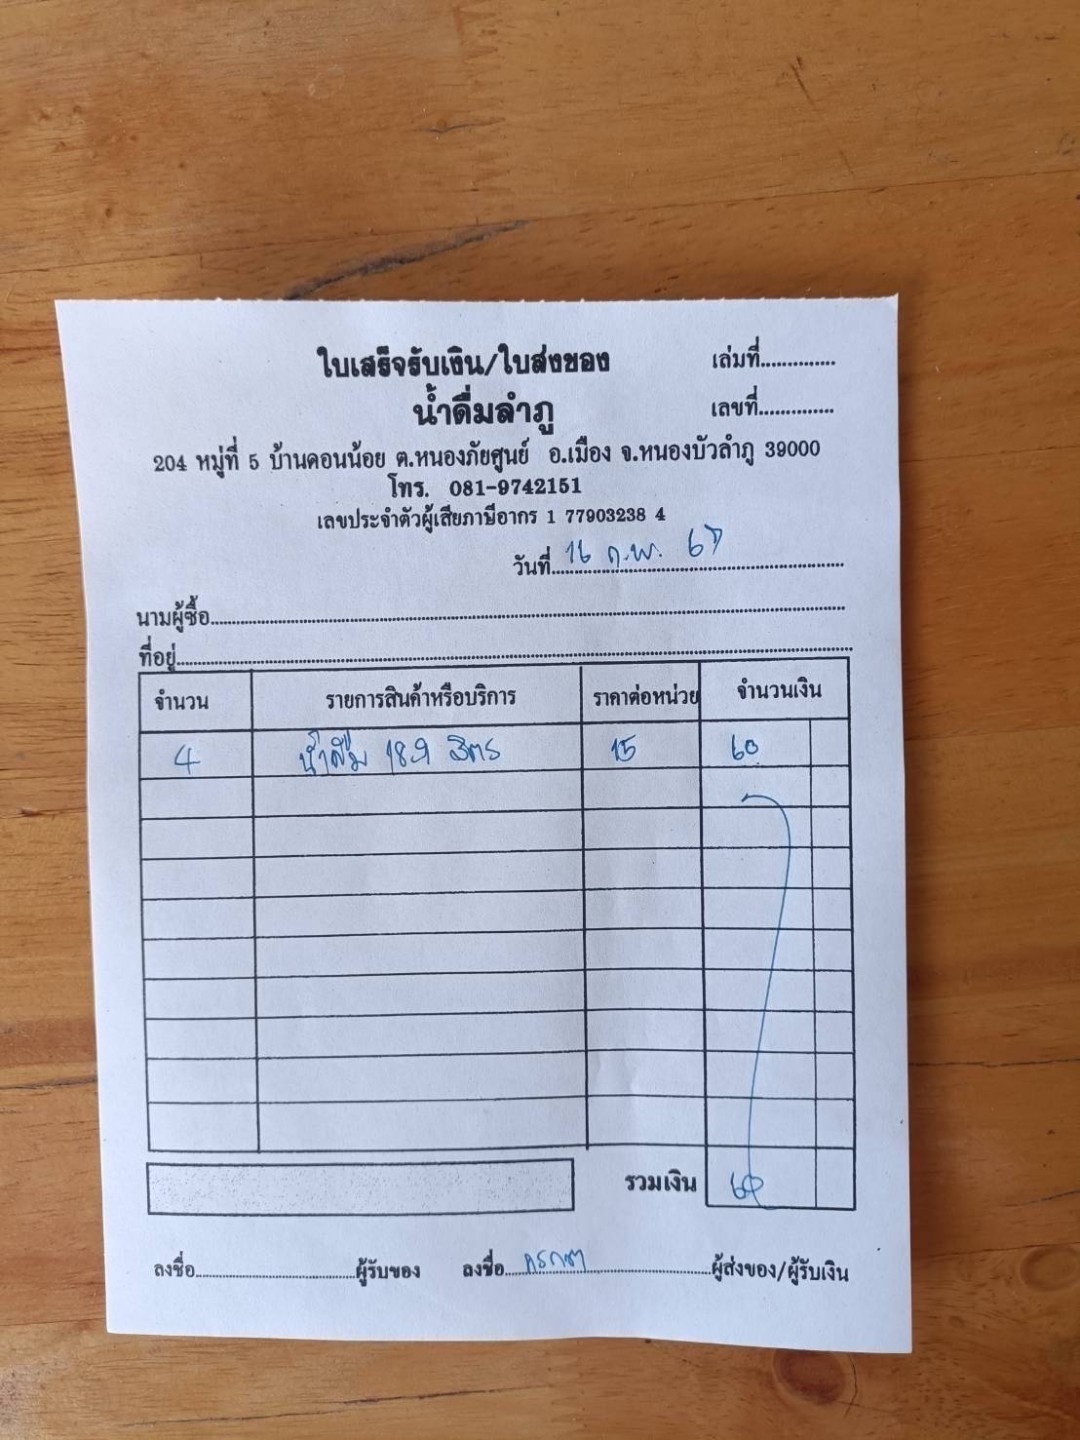 ใบเสร็จรับเงิน/ใบส่งของ
เล่มที่..............
น้ำดื่มลำภู
เลขที่..............
204 หมู่ที่ 5 บ้านดอนน้อย ต.หนองภัยศูนย์ อ.เมือง จ.หนองบัวลำภู 39000
โทร. 081-9742151
เลขประจำตัวผู้เสียภาษีอากร 1 77903238 4
วันที่ 16 ก.พ.
นามผู้ซื้อ
ที่อยู่
จำนวน รายการสินค้าหรือบริการ ราคาต่อหน่วย จำนวนเงิน
4 น้ำดื่ม 18.9 ลิตร 15 60
รวมเงิน 60
ลงชื่อ ผู้รับของ ลงชื่อ ผู้ส่งของ/ผู้รับเงิน